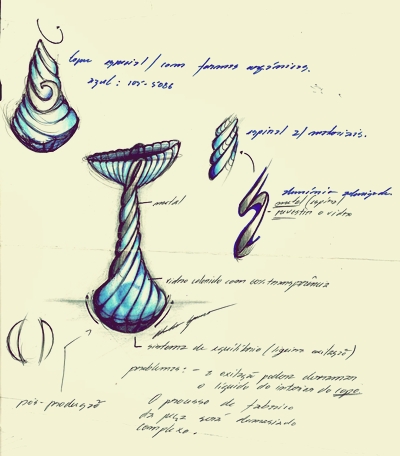 copo especial / com formas orgânicas.
azul :
espiral 2 / materiais.
alumínio
metal (espiral)
revestir o vidro
metal
vidro colorido com
sistema de equilíbrio (ligeira oxilação)
problemas: - a oxilação poderá derramar
o líquido do interior do copo
pós-produção
O processo de fabrico
da peça será demasiado
complexo.